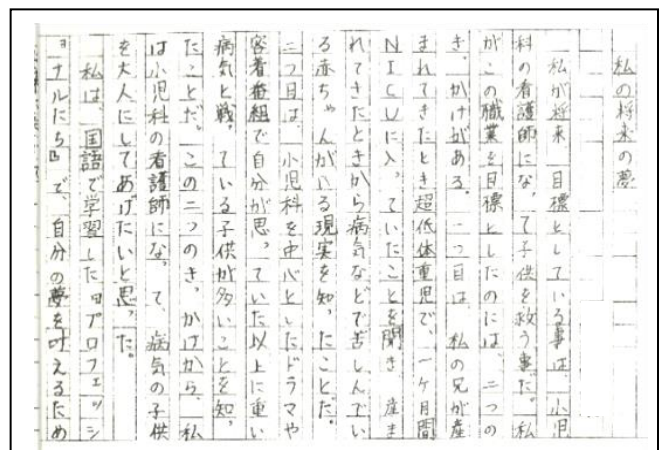 私の将来の夢
私が将来、目標としている事は、小児
科の看護師になって子供を救う事だ。私
がこの職業を目標としたのには、二つの
きっかけがある。一つ目は、私の兄が産
まれてきたとき超低体重児で、一ケ月間
NICUに入っていたことを聞き、産ま
れてきたときから病気などで苦しんでい
る赤ちゃんがいる現実を知ったことだ。
二つ目は、小児科を中心としたドラマや
密着番組で自分が思っていた以上に重い
病気と戦っている子供が多いことを知っ
たことだ。この二つのきっかけから、私
は小児科の看護師になって、病気の子供
を大人にしてあげたいと思った。
私は、国語で学習した『プロフェッシ
ョナルたち』で、自分の夢を叶えるため